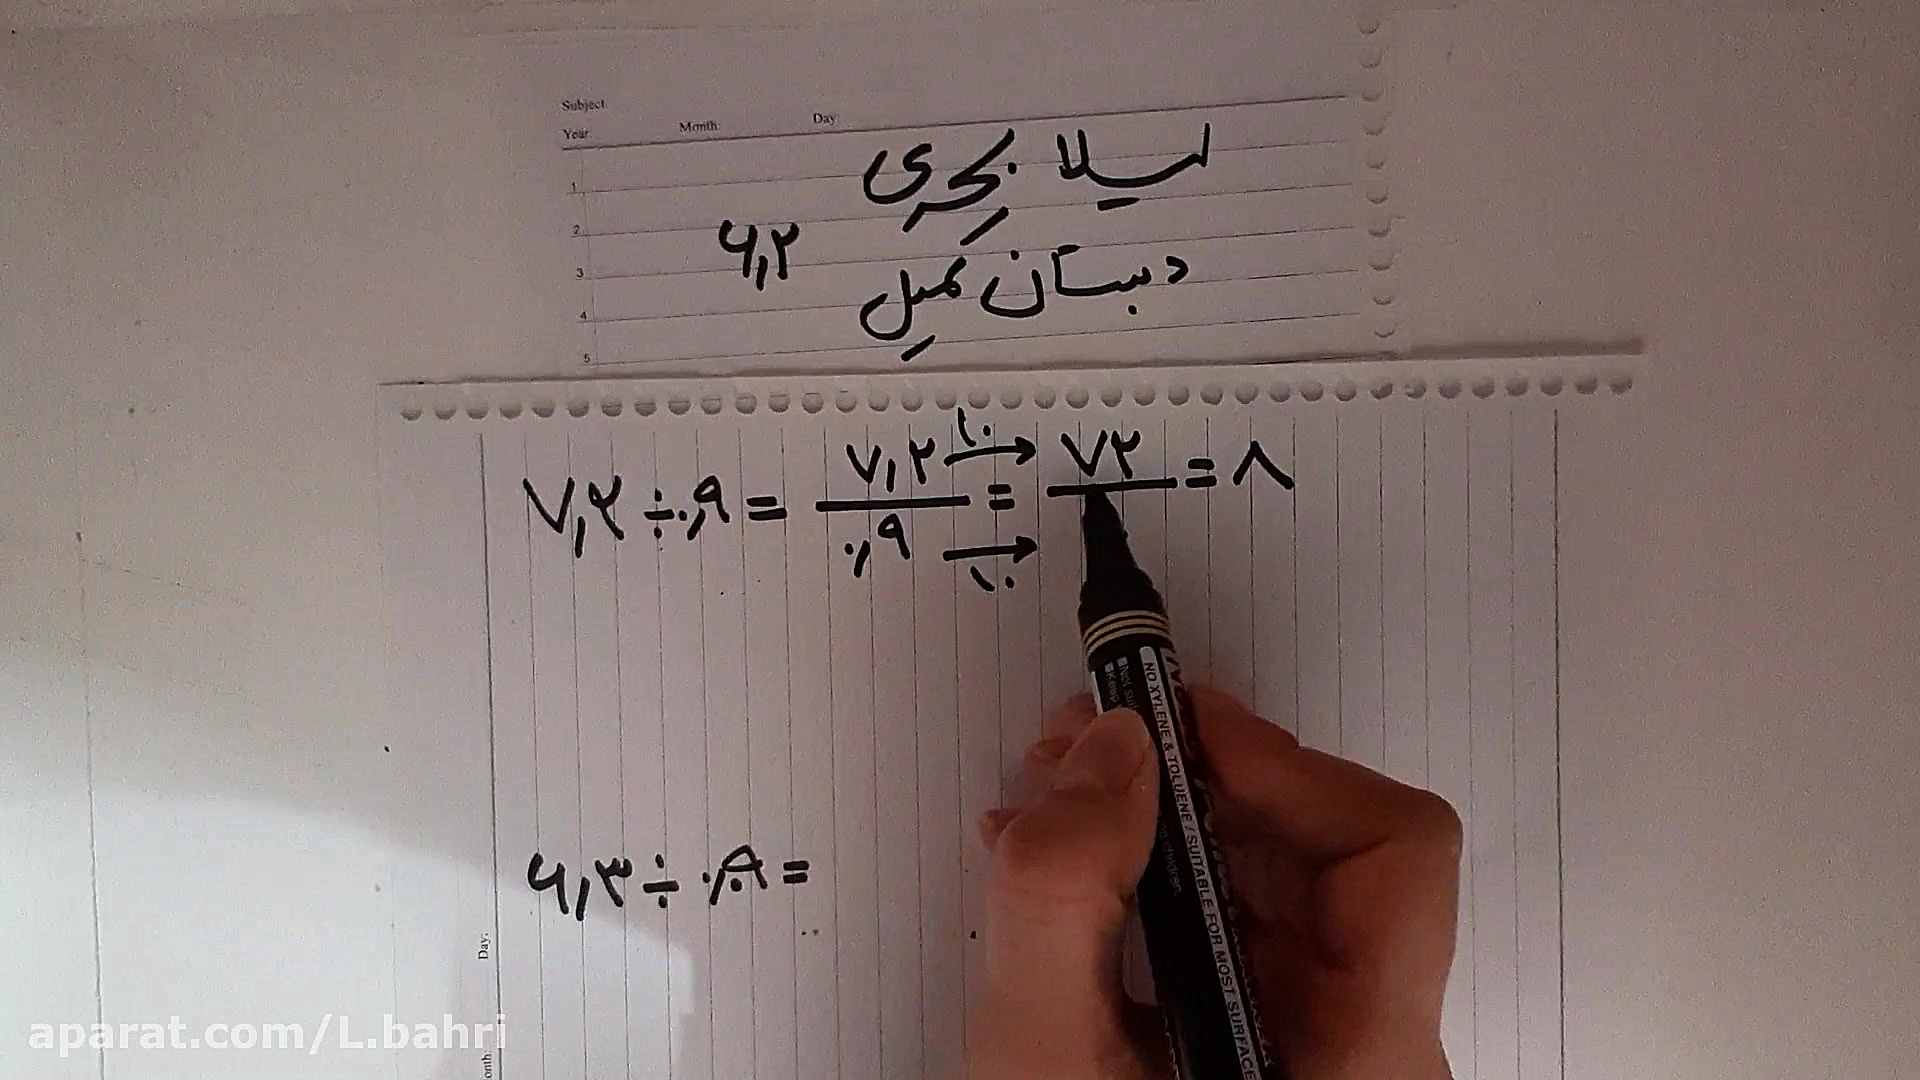 Subject:
Year: Month: Day:
لیلا بحری
دبستان کمیل ۶٫۲
1
2
3
4
5
۷٫۲ ÷ ۰٫۹ = ۷٫۲ / ۰٫۹ = ۷۲ / = ۸
۱۰ →
۱۰ →
NO XYLENE & TOLUENE / SUITABLE FOR MOST SURFACE
۶٫۳ ÷ ۰٫۰۹ =
Day:
aparat.com/L.bahri